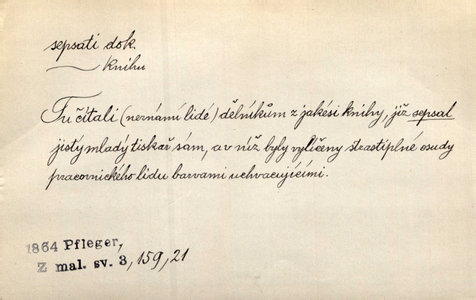 sepsati dok.
knihu
Tu čítali (neznámí lidé) dělníkům z jakési knihy, již sepsal
jistý mladý tiskař sám, a v níž byly vylíčeny strastiplné osudy
pracovnického lidu barvami uchvacujícími.
1864 Pfleger,
Z mal. sv. 3, 159, 21